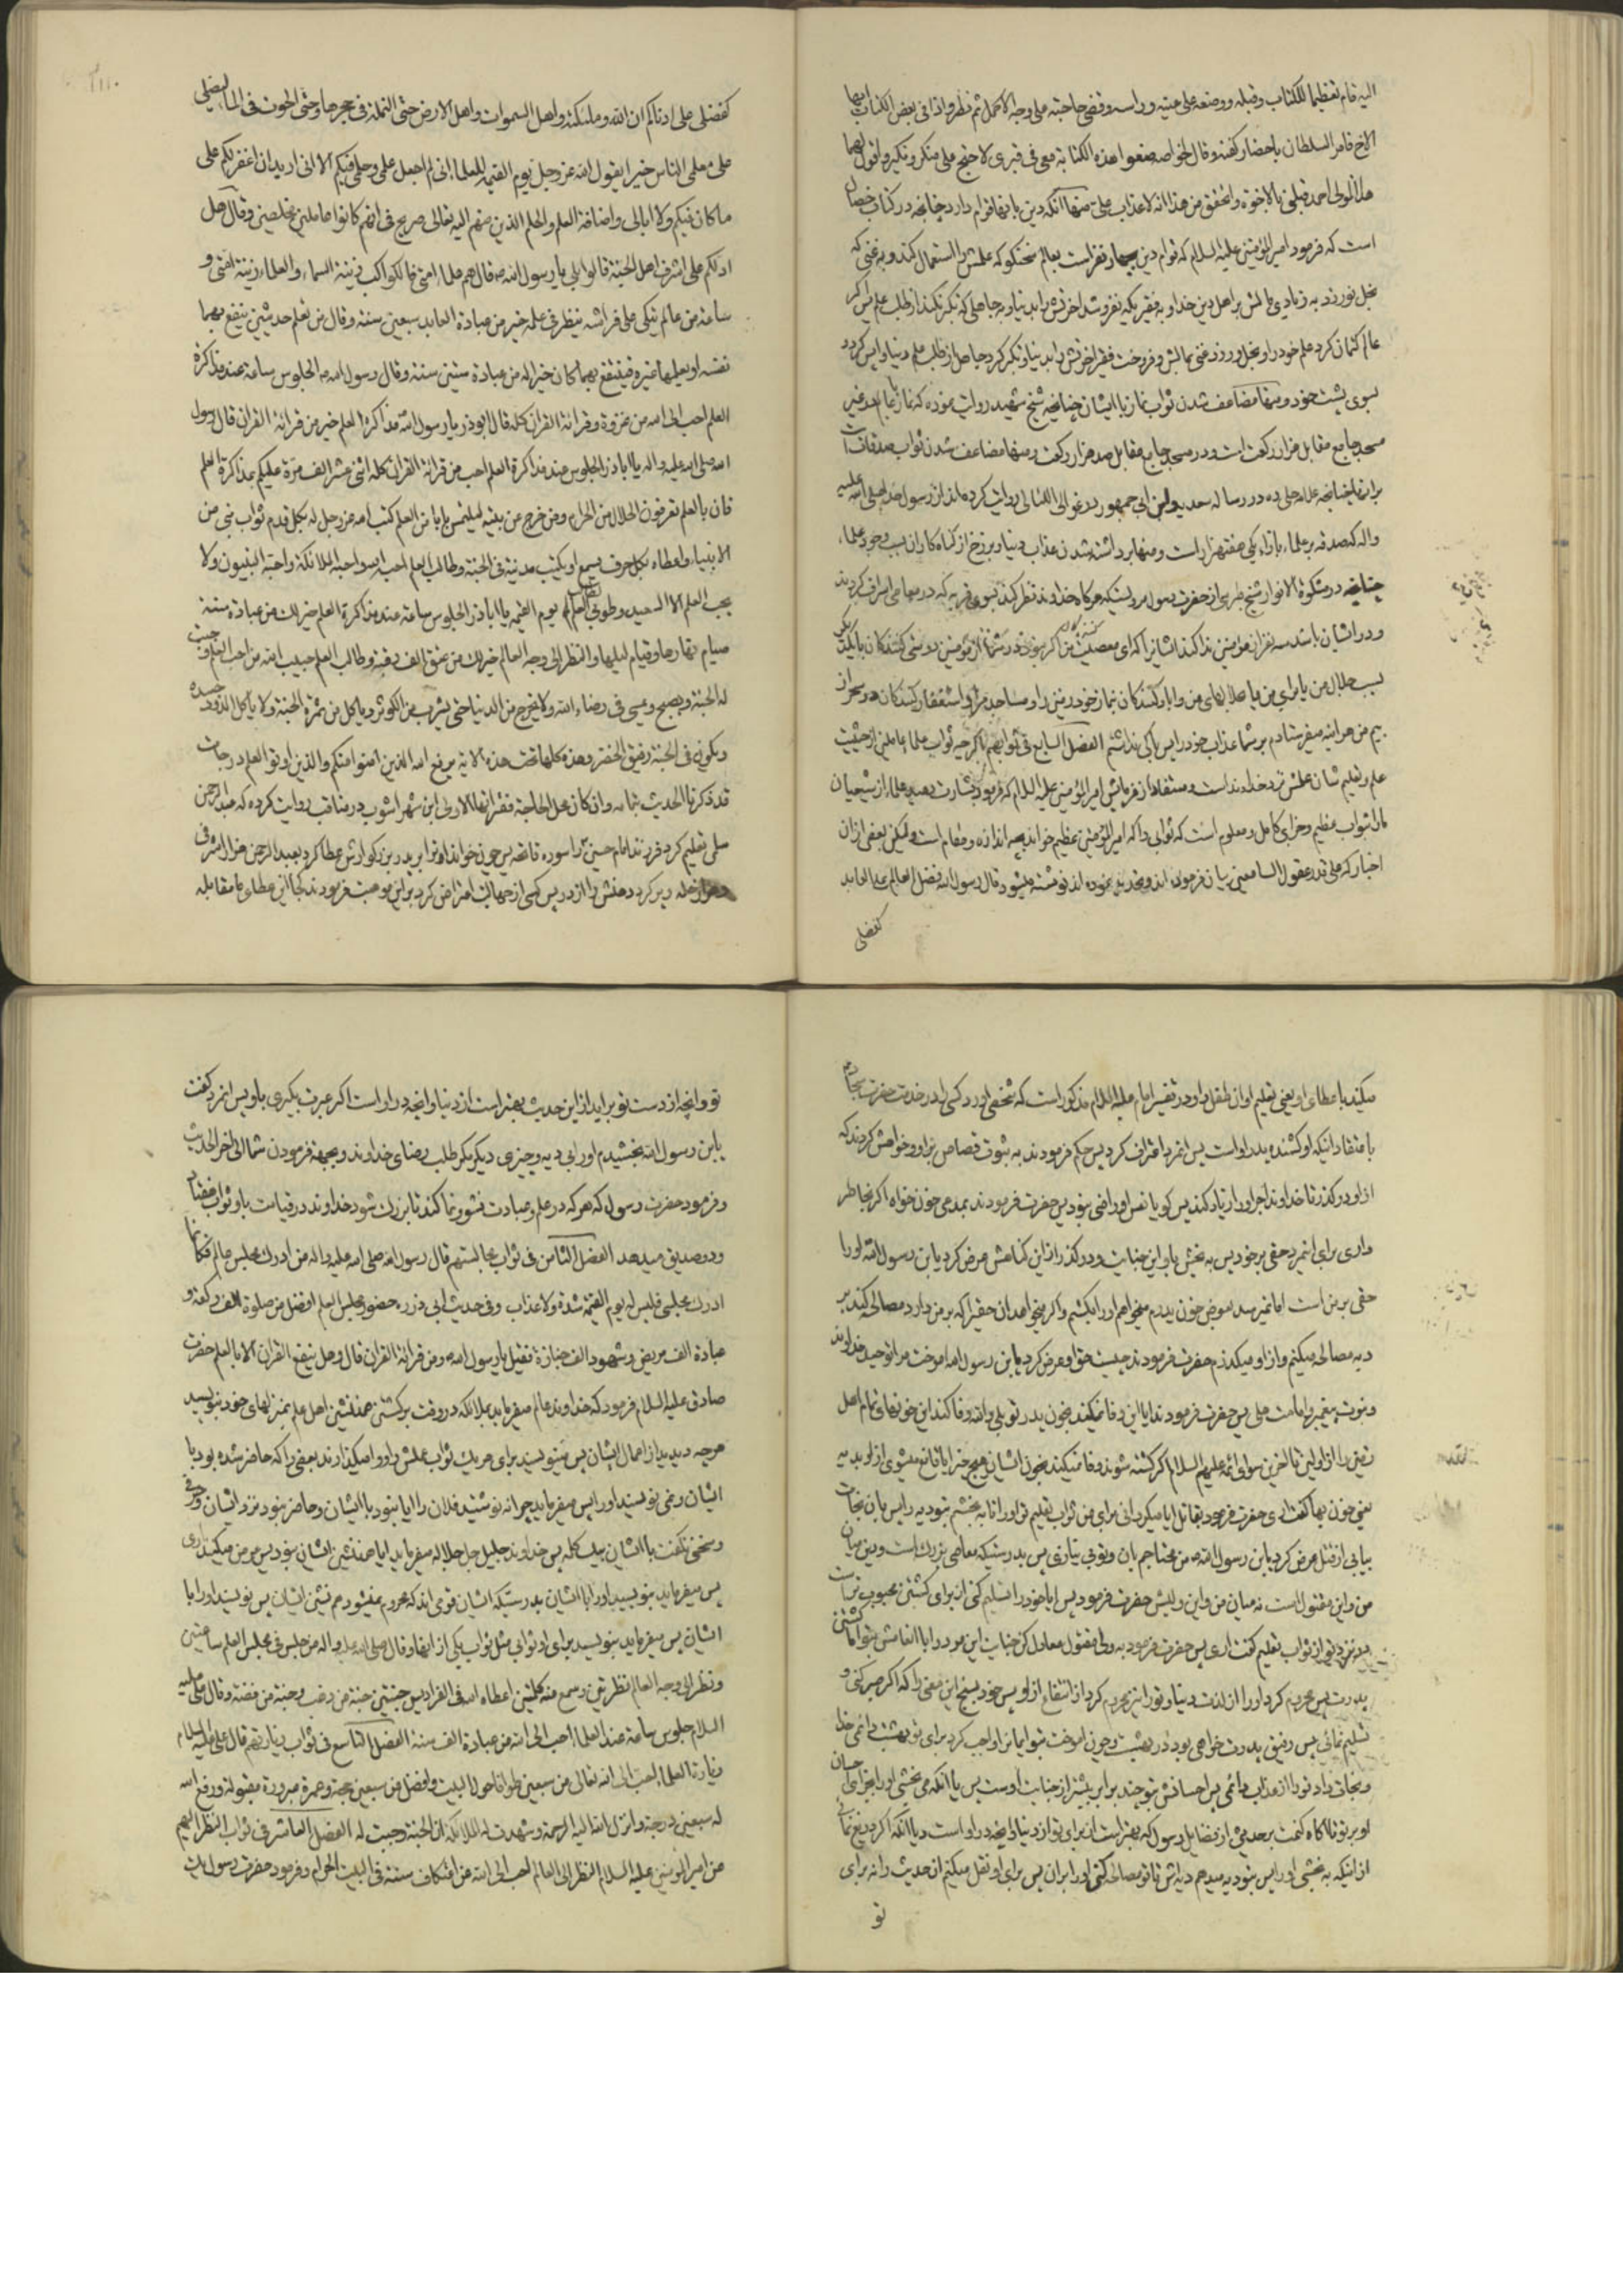 الیه قام تعظیما للکتاب وقبله ووضعه علی عینیه وراسه وقضی حاجته علی وجه الاکمل ثم نظر فاذا فی بعض الکتاب ایها
الاخ فامر السلطان باحضار کفنه وقال لخواصه ضعوا هذه الکتابة معی فی قبری لاحتج علی منکر ونکیر واقول لهما
هذا المولی احمد قبلنی بالاخوة
است که فرمود امیر المؤمنین علیه السلام که قوام دین بچهار نفر است بعالم سخنگو که علمش را استعمال کند و به غنی که
بخل نورزد به زیادی مالش بر اهل دین خدا و به فقیریکه نفروشد اخرتش را بدنیا و به جاهلی که تکبر نکند از طلب علم پس اگر
عالم کتمان کرد علم خود را و بخل ورزد غنی بمالش و فروخت فقیر اخرتش را بدنیا و تکبر کرد جاهل از طلب علم دنیا واپس گردد
بسوی پشت خود ومنها مضاعف شدن ثواب نماز با ایشان چنانچه شیخ شهید روایت نموده که نماز با عالم در غیر
مسجد جامع مقابل هزار رکعت است و در مسجد جامع مقابل صد هزار رکعت ومنها مضاعف شدن ثواب صدقات
واله که صدقه بر علماء بازاء یکی هفتهزار است ومنها برداشته شدن عذاب دنیا و برزخ از گناه کاران بسبب وجود علماء
چنانچه در مشکوة الانوار شیخ طبرسی از حضرت رسول
بیم من هر اینه میفرستادم بر شما عذاب خود را پس باکی نداشتم الفصل السابع فی ثوابهم
علم وتعلیم شان علمش نزد خداوند است ومستفاد از فرمایش امیر المؤمنین علیه السلام که فرمود بشارت دهید علماء از شیعیان
مارا بثواب عظیم وجزای کامل ومعلوم است که ثوابی را که امیر المؤمنین عظیم خواند بچه اندازه ومقام است ولیکن بعضی از ان
اخبار که علی قدر عقول السامعین بیان فرموده اند وتحدید نموده اند نوشته میشود قال رسول الله فضل العالم علی العابد
کفضلی
کفضلی علی ادناکم ان الله وملئکته واهل السموات واهل الارض حتی النملة فی حجرها وحتی الحوت فی الماء لیصلی
علی معلمی الناس خیرا یقول الله عز وجل یوم القیمة للعلماء انی لم اجعل علمی وحلمی فیکم الا انی ارید ان اغفر لکم علی
ما کان فیکم ولا ابالی واضافة العلم والحلم الذین منهم الیه تعالی صریح فی انهم کانوا عاملین مخلصین وقال هل
ادلکم علی اشرف اهل الجنة قالوا بلی یا رسول الله ص قال هم علماء امتی فالکواکب زینة السماء والعلماء زینة امتی و
ساعة من عالم یتکی علی فراشه ینظر فی علمه خیر من عبادة العابد سبعین سنة وقال من تعلم حدیثین ینفع بهما
نفسه او یعلمهما غیره فینتفع بهما کان خیرا له من عبادة ستین سنة وقال رسول الله ص الجلوس ساعة عند مذاکرة
العلم احب الی الله من غزوة وقرائة القران کله قال ابوذر یا رسول الله مذاکرة العلم خیر من قرائة القران قال رسول
الله صلی الله علیه واله یا اباذر الجلوس عند مذاکرة العلم احب من قرائة القران کله اثنی عشر الف مرة علیکم بمذاکرة العلم
فان بالعلم تعرفون الحلال من الحرام ومن خرج من بیته لیلتمس بابا من العلم کتب الله عز وجل له بکل قدم ثواب نبی من
الانبیاء واعطاه بکل حرف یسمع او یکتب مدینة فی الجنة وطالب العلم احبه الله واحبه الملائکة واحبه النبیون ولا
یحب العلم الا السعید وطوبی لطالب العلم یوم القیمة یا اباذر الجلوس ساعة عند مذاکرة العلم خیر لک من عبادة سنة
صیام نهارها وقیام لیلها والنظر الی وجه العالم خیر لک من عتق الف رقبة وطالب العلم حبیب الله من احب العلم وجبت
له الجنة ویصبح ویمسی فی رضاء الله ولا یخرج من الدنیا حتی یشرب من الکوثر ویاکل من ثمرة الجنة ولا یاکل الدود جسده
ویکون فی الجنة رفیق الخضر وهذه کلها تحت هذه الایة یرفع الله الذین امنوا منکم والذین اوتوا العلم درجات
قد ذکرنا الحدیث بتمامه وان کان محل الحاجة فقراتها الاولی ابن شهر اشوب در مناقب روایت کرده که عبد الرحمن
سلمی تعلیم کرد فرزند امام حسین را سوره فاتحه پس چون خواند او نزد پدر بزرگوارش عطا کرد بعبد الرحمن هزار اشرفی
وهزار حله وپر کرد دهنش را از در پس کسی از جهالت اعتراض کرد بر این موهبت فرمودند کجا این عطاء ما مقابله
میکند با عطای او یعنی تعلیم او ان طفل را و در تفسیر امام علیه السلام مذکور است که شخصی اورد کسی را در خدمت حضرت سجاد
باعتقاد اینکه او کشنده پدر او است پس انمرد اعتراف کرد پس حکم فرمودند به ثبوت قصاص بر او وخواهش کردند که
از او در گذرد تا خداوند اجر او را زیاد کند پس گویا نفس او راضی نبود پس حضرت فرمودند بمدعی خون خواه اگر بخاطر
داری برای انمرد حقی بر خود پس به بخش باو این جنایت و در گذر از این گناهش عرض کرد یابن رسول الله او را
حقی بر من است اما نمیرسد بعوض خون پدرم میخواهم او را بکشم واگر میخواهد ان حقیرا که بر من دارد مصالحه کند بر
دیه مصالحه میکنم واز او میگذرم حضرت فرمودند چیست حق او عرض کرد یابن رسول الله اموخت مرا توحید خداوند
ونبوت پیغمبر وامامت علی پس حضرت فرمودند ایا این وفا نمیکند بخون پدر تو بلی والله وفا کند این خونهای تمام اهل
زمین را از اولین تا اخرین سوای ائمه علیهم السلام اگر کشته شوند وفا نمیکند بخون ایشان هیچ چیز ایا قانع میشوی از او بدیه
یعنی خون بها گفت اری حضرت فرمود بقاتل ایا میگردانی برای من ثواب تعلیم تو او را تا به بخشم بتو دیه را پس بان نجات
بیابی از قتل عرض کرد یابن رسول الله ص من محتاجم بان وتو بی نیازی پس بدرستیکه معاصی بزرگ است وبین میان
من واین مقتول است نه میان من واین ولیش حضرت فرمود پس ایا خود را تسلیم کنی از برای کشتن محبوب تر است
نزد تو از ثواب تعلیم گفت اری پس حضرت فرمود به ولی مقتول معادل کن جنایت این مرد را با انعامش بتو اما کشتن
پدرت پس محروم کرد او را از لذت دنیا وتو را نیز محروم کرد از انتفاع از او پس خود بسنج این معنی را که اگر صبر کنی و
تسلیم نمائی پس رفیق پدرت خواهی بود در بهشت وچون اموخت بتو ایمان را واجب کرد برای تو بهشت دائمی خدا
ونجات داد تو را از عذاب دائمی پس احسانش بتو چند برابر بیشتر از جنایت اوست پس یا انکه می بخشی او را بجزای احسان
او بر تو تا اگاه کنمت بر حدیثی از فضایل رسول که بهتر است از برای تو از دنیا وانچه در او است ویا انکه اگر دریغ نمائی
از اینکه به بخشی او را پس بتو دیه میدهم دیه اش تا تو مصالحه کنی او را بر ان پس برای او نقل میکنم ان حدیث را نه برای
تو
تو وانچه از دست تو بر اید از این حدیث بهتر است از دنیا وانچه در او است اگر عبرت بگیری باو پس انمرد گفت
یابن رسول الله بخشیدم او را بی دیه وچیزی دیگر مگر طلب رضای خداوند وبجهة فرمودن شما الی اخر الحدیث
وفرمود حضرت رسول که هر که در علم وعبادت نشو ونما کند تا بزرگ شود خداوند در قیامت باو ثواب هفتاد
ودو صدیق میدهد الفصل الثامن فی ثواب مجالستهم قال رسول الله صلی الله علیه واله من ادرک مجلس عالم فکانما
ادرک مجلسی فلیس له یوم القیمة شدة ولا عذاب وفی حدیث ابی ذر ره حضور مجلس العلم افضل من صلوة الف رکعة و
عیادة الف مریض وشهود الف جنازة فقیل یا رسول الله ص ومن قرائة القران قال وهل ینفع القران الا بالعلم حضرت
صادق علیه السلام فرمود که خداوند عالم میفرماید بملائکه در وقت برگشتن همنشین اهل علم بمنزلهای خود بنویسید
هر چه دیدید از اعمال ایشان پس مینویسند برای هر یک ثواب عملش را ووا میگذارند بعضی را که حاضر شده بود با
ایشان ونمی نویسند او را پس میفرماید چرا ننوشتید فلان را ایا نبود با ایشان وحاضر نبود نزد ایشان
وسخنی نگفت با ایشان بیک کلمه پس خداوند جلیل جل جلاله میفرماید ایا همنشین ایشان نبود پس عرض میکنند اری
پس میفرماید بنویسید او را با ایشان بدرستیکه ایشان قومی اند که محروم نمیشود هم نشین ایشان پس نویسید او را با
ایشان پس میفرماید بنویسید برای او ثوابی مثل ثواب یکی از اینها وقال صلی الله علیه واله من جلس فی مجلس العلم ساعتین
ونظر الی وجه العالم نظرتین وسمع منه کلمتین اعطاه الله فی الفردوس جنتین جنة من ذهب وجنة من فضة وقال علی علیه
السلام جلوس ساعة عند العلماء احب الی الله من عبادة الف سنة الفصل التاسع فی ثواب زیارتهم قال علی علیه السلام
زیارة العلماء احب الی الله تعالی من سبعین طوافا حول البیت وافضل من سبعین حجة وعمرة مبرورة مقبولة ورفع الله
له سبعین درجة وانزل الله الیه الرحمة وشهدت له الملائکة ان الجنة وجبت له الفصل العاشر فی ثواب النظر الیهم
عن امیر المؤمنین علیه السلام النظر الی العالم احب الی الله من اعتکاف سنة فی البیت الحرام وفرمود حضرت رسول